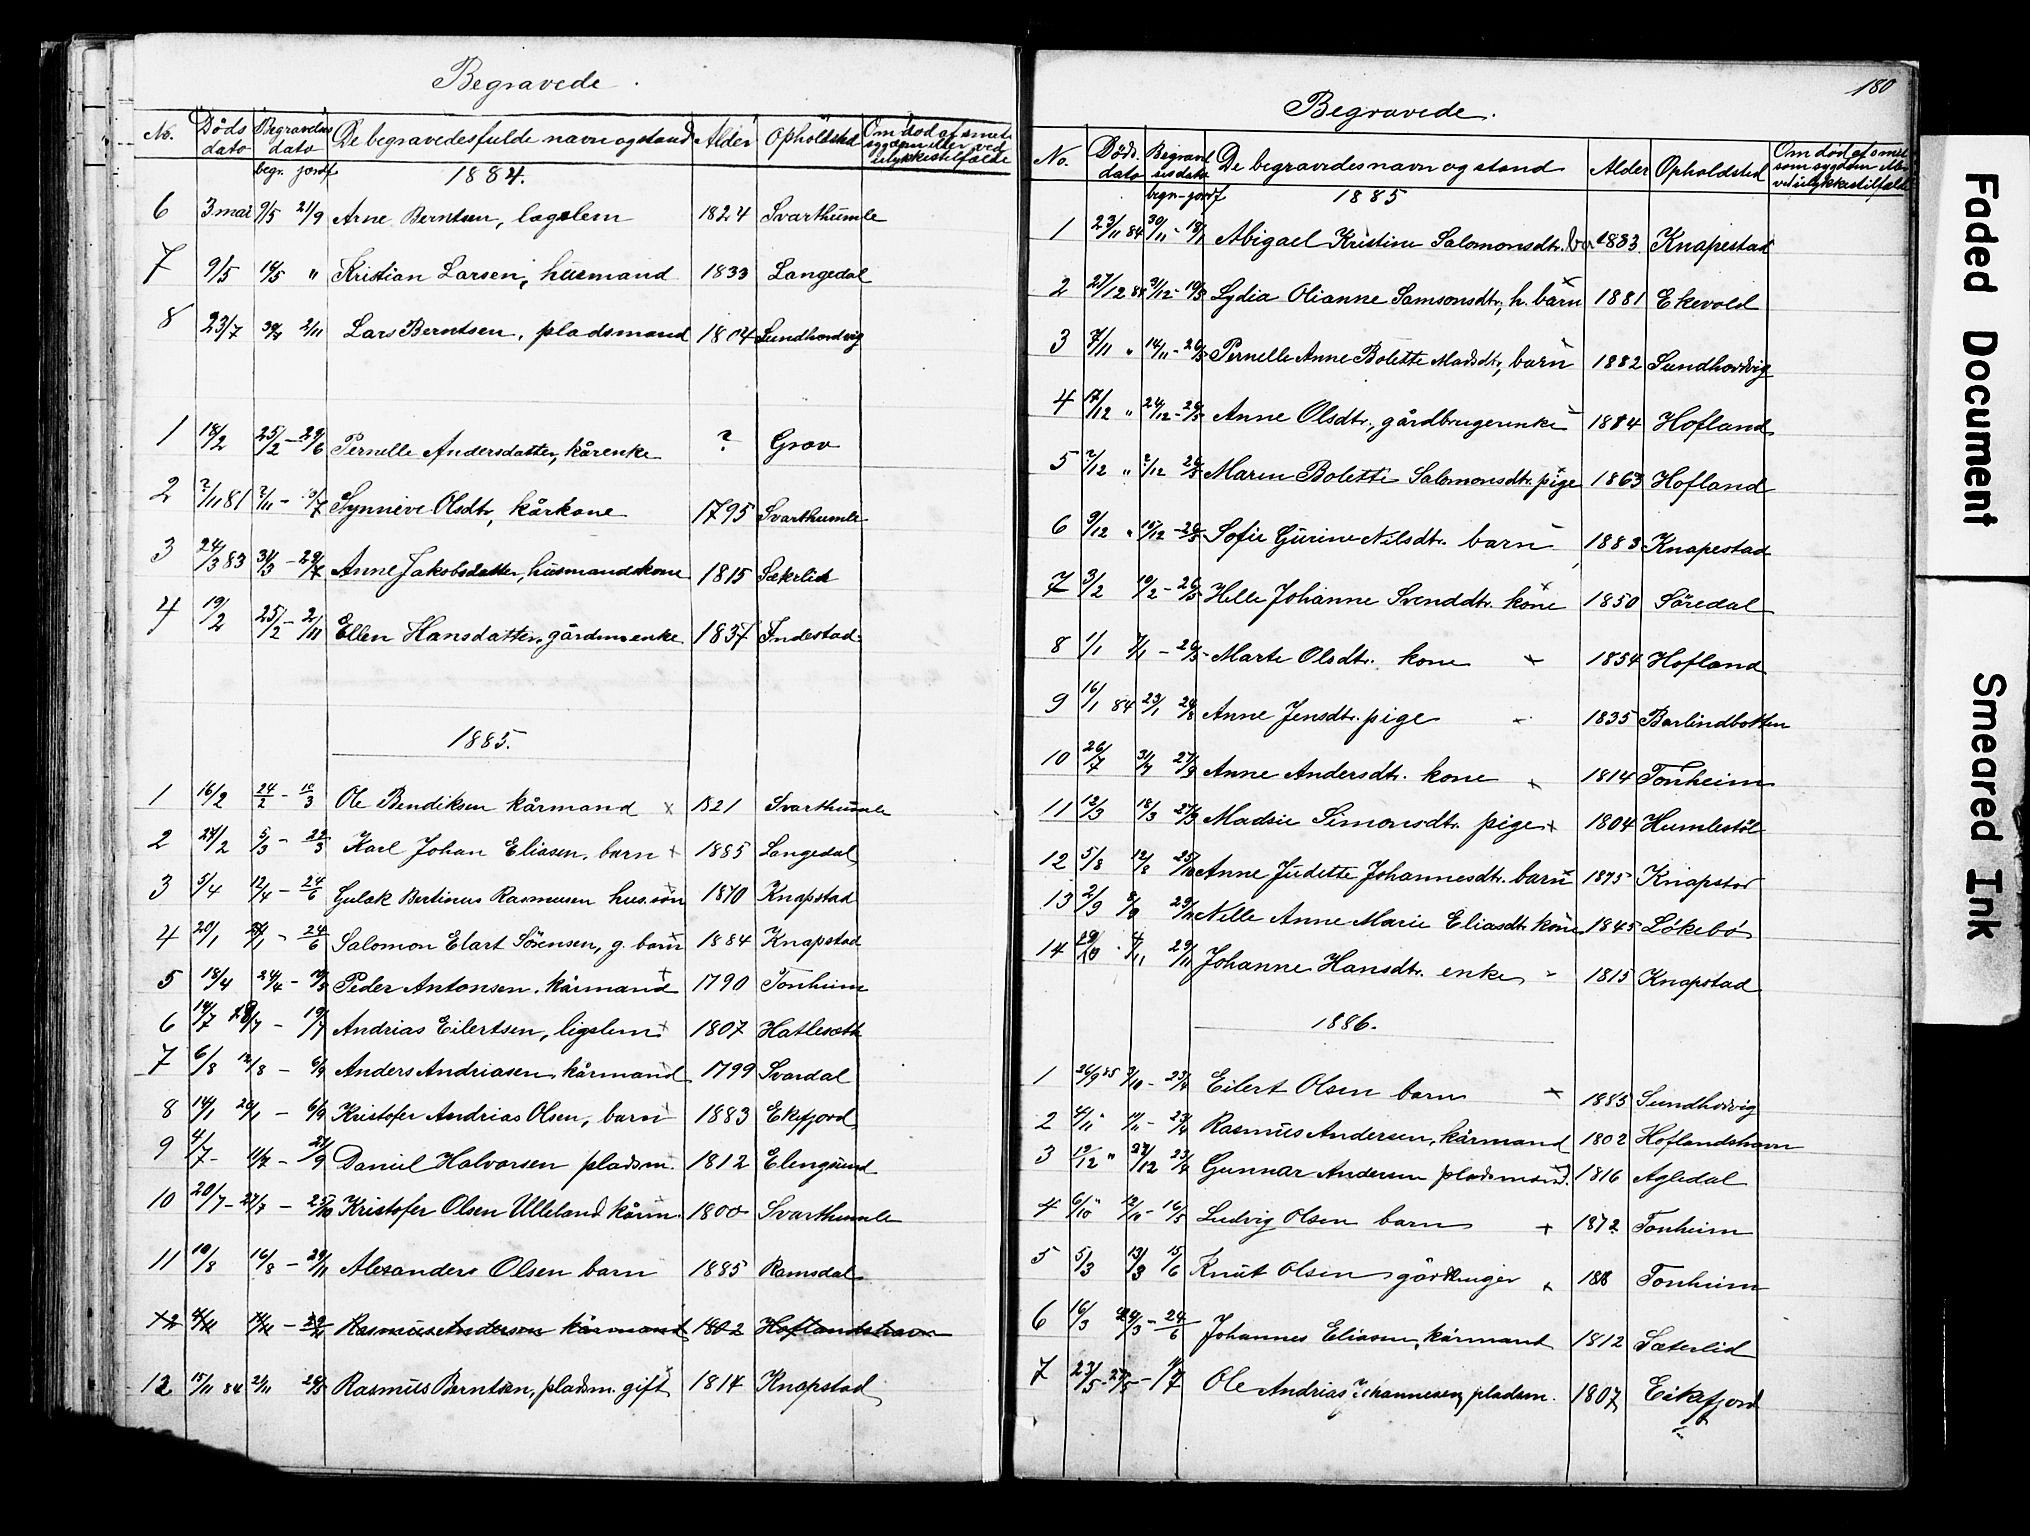 Begravede.
No. Døds dato Begravelses dato De begravedes fulde navn og stand Alder Opholdsted Om død af smet sygdom eller ved ulykkestilfælde
begr. jordf
1884.
6 3 mai 9/5 21/9 Arne Berntsen, lægslem 1824 Svarthumle
7 9/5 14/5 " Kristian Larsen, husmand 1833 Langedal
8 23/7 2/11 Lars Berntsen, pladsmand 1804 Sundhordvig
1 18/2 25/2 - 29/6 Pernelle Andersdatter, kårenke ? Grov
2 ?/11 81 ?/11 - 3/7 Synneve Olsdtr, kårkone 1795 Svarthumle
3 24/3 83 31/3 - 29/7 Anne Jakobsdatter, husmandskone 1815 Sæterlid
4 19/2 25/2 - 2/11 Ellen Hansdatter, gårdm.enke 1837 Indestad
1885.
1 16/2 24/2 - 10/3 Ole Bendiksen kårmand x 1821 Svarthumle
2 24/2 5/3 - 22/3 Karl Johan Eliasen, barn x 1885 Langedal
3 5/4 12/4 - 24/6 Gulak Bertinus Rasmusen hus.søn 1870 Knapstad
4 20/1 - 24/6 Salomon Elart Sörensen, g. barn 1884 Knapstad
5 18/4 24/4 - 19/5 Peder Antonsen, kårmand 1790 Tonheim
6 14/7 - 19/7 Andrias Eilertsen, ligslem x 1807 Hatlesætt
7 6/8 12/8 - 6/9 Anders Andriasen, kårmand 1799 Svardal
8 14/1 20/1 - 6/9 Kristofer Andrias Olsen, barn 1883 Ekefjord
9 4/7 - 11/7 - 27/9 Daniel Halvorsen pladsm. 1812 Elengsund
10 20/7 - 27/7 - 25/10 Kristofer Olsen Ulleland kårm. 1800 Svarthumle
11 10/8 16/8 - 29/11 Alexanders Olsen barn 1885 Ramsdal
12 4/11 - Rasmus Andersen kårmand 1802 Hoflandshavn
12 15/11 84 2/11 Rasmus Berntsen, pladsm. gift 1814 Knapstad
180
Begravede.
No. Døds. dato Begravelsesdato De begravedes navn og stand Alder Opholdsted Om død af smitsom sygdom eller ved ulykkestilfæld
begr - jordf
1885
1 23/11 84 30/11 - 18/1 Abigael Kristine Salomonsdtr. ba 1883. Knapestad
2 27/12 84 31/12 - 19/3 Lydia Olianne Samsonsdtr, h. barn 1881 Ekevold
3 7/11 " 14/11 - 26/5 Pernelle Anne Bolette Madsdtr, barn 1882 Sundhordvig
4 17/12 " 24/12 - 26/5 Anne Olsdtr, gårdbrugerenke 1884 Hofland
5 ?/12 " ?/12 26/5 Maren Bolette Salomonsdtr. pige 1863 Hofland
6 9/12 " 15/12 - 26/5 Sofie Gurine Nilsdtr. barn 1883 Knapestad
7 3/2 10/2 - 26/5 Helle Johanne Svenddtr. kone 1850 Söredal
8 1/1 7/1 - 26/5 Marte Olsdtr. kone x 1854 Hofland
9 16/1 84 23/1 24/8 Anne Jensdtr. pige 1835 Barlindbotten
10 26/7 31/7 27/9 Anne Andersdtr. kone x 1814 Tonheim
11 12/3 18/3 27/9 Madsie Simonsdtr. pige x 1804 Humlestöl
12 5/8 12/8 25/10 Anne Judette Johannesdtr. barn 1875 Knapstad
13 2/9 8/9 Nille Anne Marie Eliasdtr kone 1845 Løkebø
14 29/10 - 4/11 29/11 Johanne Hansdtr. enke 1815 Knapstad
1886.
1 26/9 85 3/10 - 23/4 Eilert Olsen barn x 1885 Sundhovig
2 4/11 " 11/11 - 23/4 Rasmus Andersen, kårmand 1802 Hoflandshavn
3 19/12 " 27/12 23/4 Gunnar Andersen pladsmand. 1816 Agledal
4 6/10 " 12/10 - 16/5 Ludvig Olsen barn x 1872 Tonheim
5 5/3 13/3 15/6 Knut Olsen gårdbruger x Tonheim
6 16/3 24/3 - 24/6 Johannes Eliasen, kårmand 1812 Sæterlid
7 23/5 - 27/5 - 11/7 Ole Andrias Johannesen pladsm. 1807 Eikefjord
Faded Document
Smeared Ink